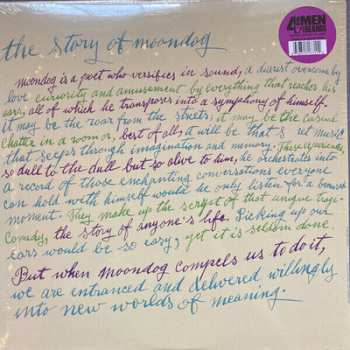 the story of moondog
4 MEN
WITH BEARDS
moondog is a poet who versifies in sound, a diarist overcome by
love curiosity and amusement by everything that reaches his
ears; all of which he transposes into a symphony of himself.
it may be the roar from the streets; it may be the casual
chatter in a room or, best of all, it will be that secret music
that seeps through imagination and memory. These apparently
so dull to the dull but so alive to him, he orchestrates into
a record of those enchanting conversations everyone
can hold with himself would he only listen for a
moment. They make up the script of that unique tragi-
comedy, the story of anyone's life. Picking up our
ears would be so easy; yet it is seldom done.
But when moondog compels us to do it,
we are entranced and delivered willingly
into new worlds of meaning.